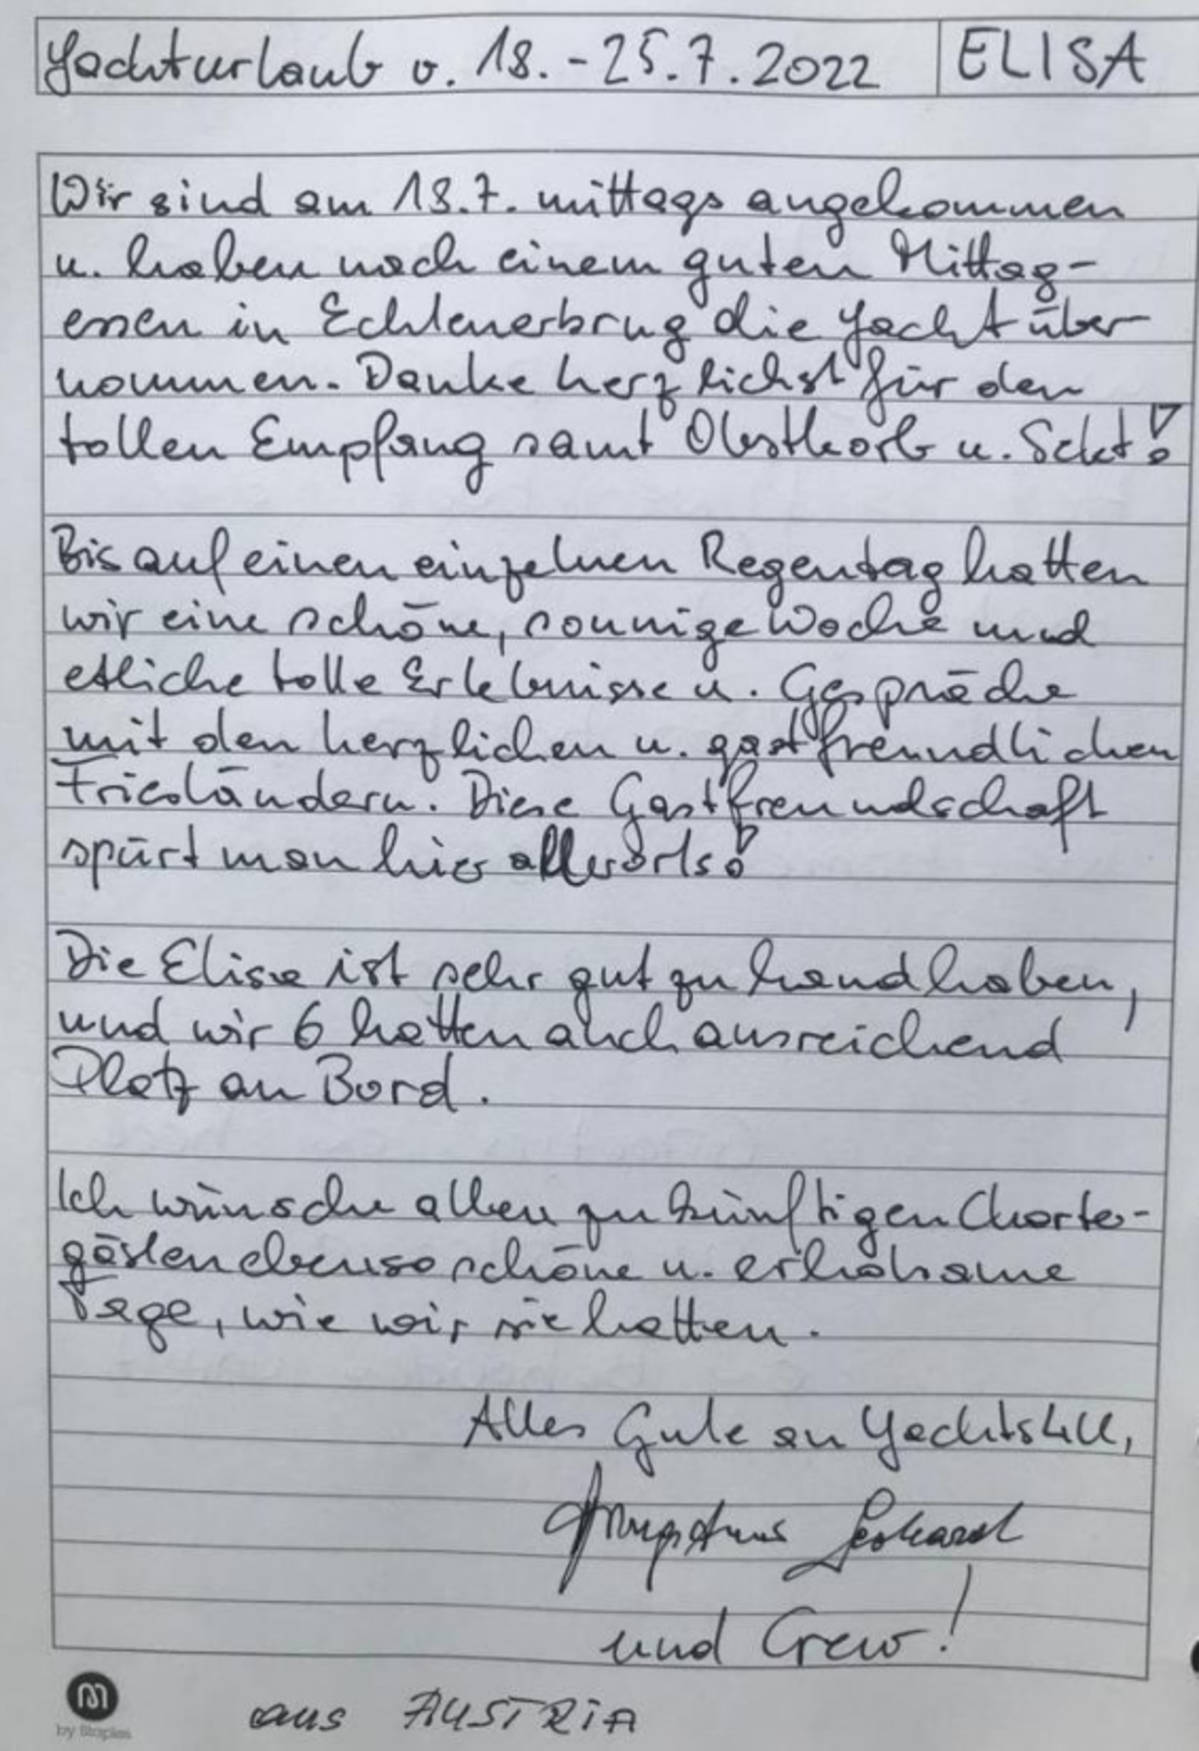 Yachturlaub v. 18.-25.7.2022 ELISA
Wir sind am 18.7. mittags angekommen
u. haben nach einem guten Mittag-
essen in Echtenerbrug die Yacht über-
nommen. Danke herzlichst für den
tollen Empfang samt Obstkorb u. Sekt!
Bis auf einen einzelnen Regentag hatten
wir eine schöne, sonnige Woche und
etliche tolle Erlebnisse u. Gespräche
mit den herzlichen u. gastfreundlichen
Friesländern. Diese Gastfreundschaft
spürt man hier allerorts!
Die Elisa ist sehr gut zu handhaben,
und wir 6 hatten auch ausreichend
Platz an Bord.
Ich wünsche allen zukünftigen Charter-
gästen ebenso schöne u. erholsame
Tage, wie wir sie hatten.
Alles Gute an Yachts4U,
und Crew!
M
by Staples
aus AUSTRIA